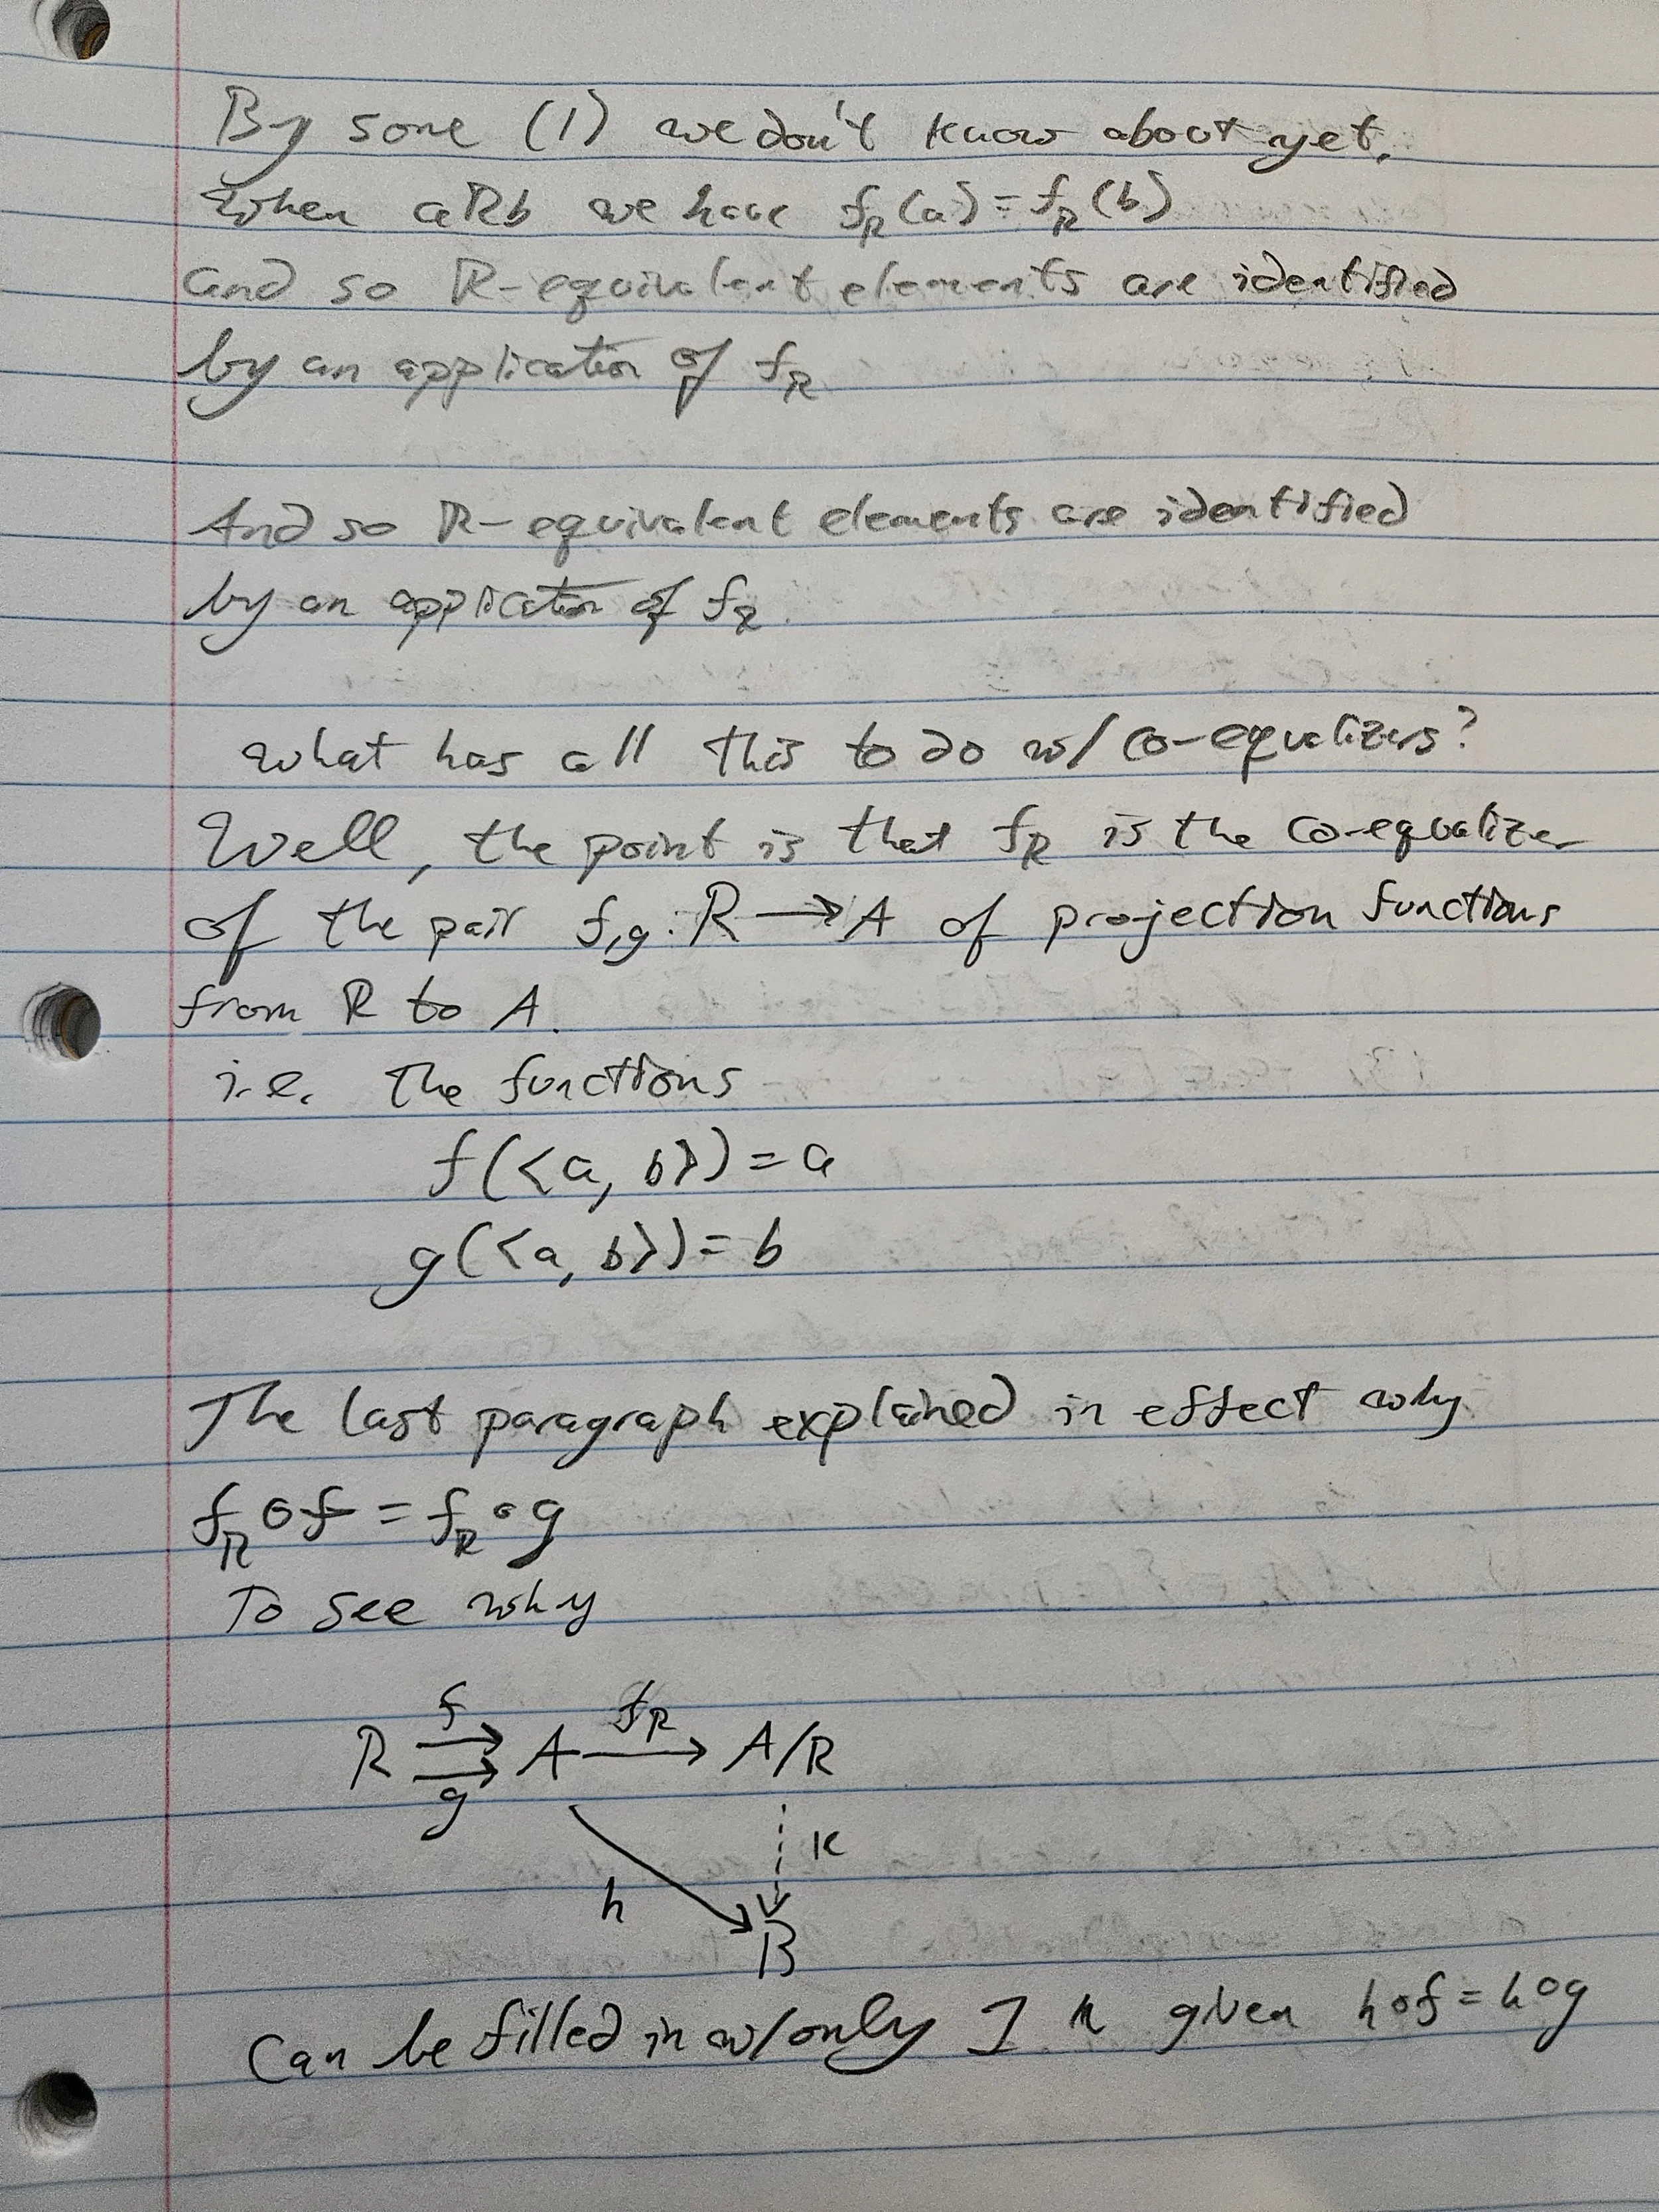 By some (1) we don't know about yet,
When aRb we have f_R(a) = f_R(b)
and so R-equivalent elements are identified
by an application of f_R
And so R-equivalent elements are identified
by an application of f_R.
What has all this to do w/ co-equalizers?
Well, the point is that f_R is the co-equalizer
of the pair f,g: R → A of projection functions
from R to A.
i.e. The functions
f(<a, b>) = a
g(<a, b>) = b
The last paragraph explained in effect why
f_R ∘ f = f_R ∘ g
To see why
f f_R
R ⇉ A → A/R
g
k
h
B
Can be filled in w/ only 1 k given h∘f = h∘g